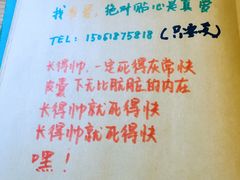 我多爱，绝对贴心是真爱
TEL：15061875818（只要天）
长得帅，一定死得灰常快
皮囊下无比肮脏的内在
长得帅就死得快
长得帅就死得快
嘿！